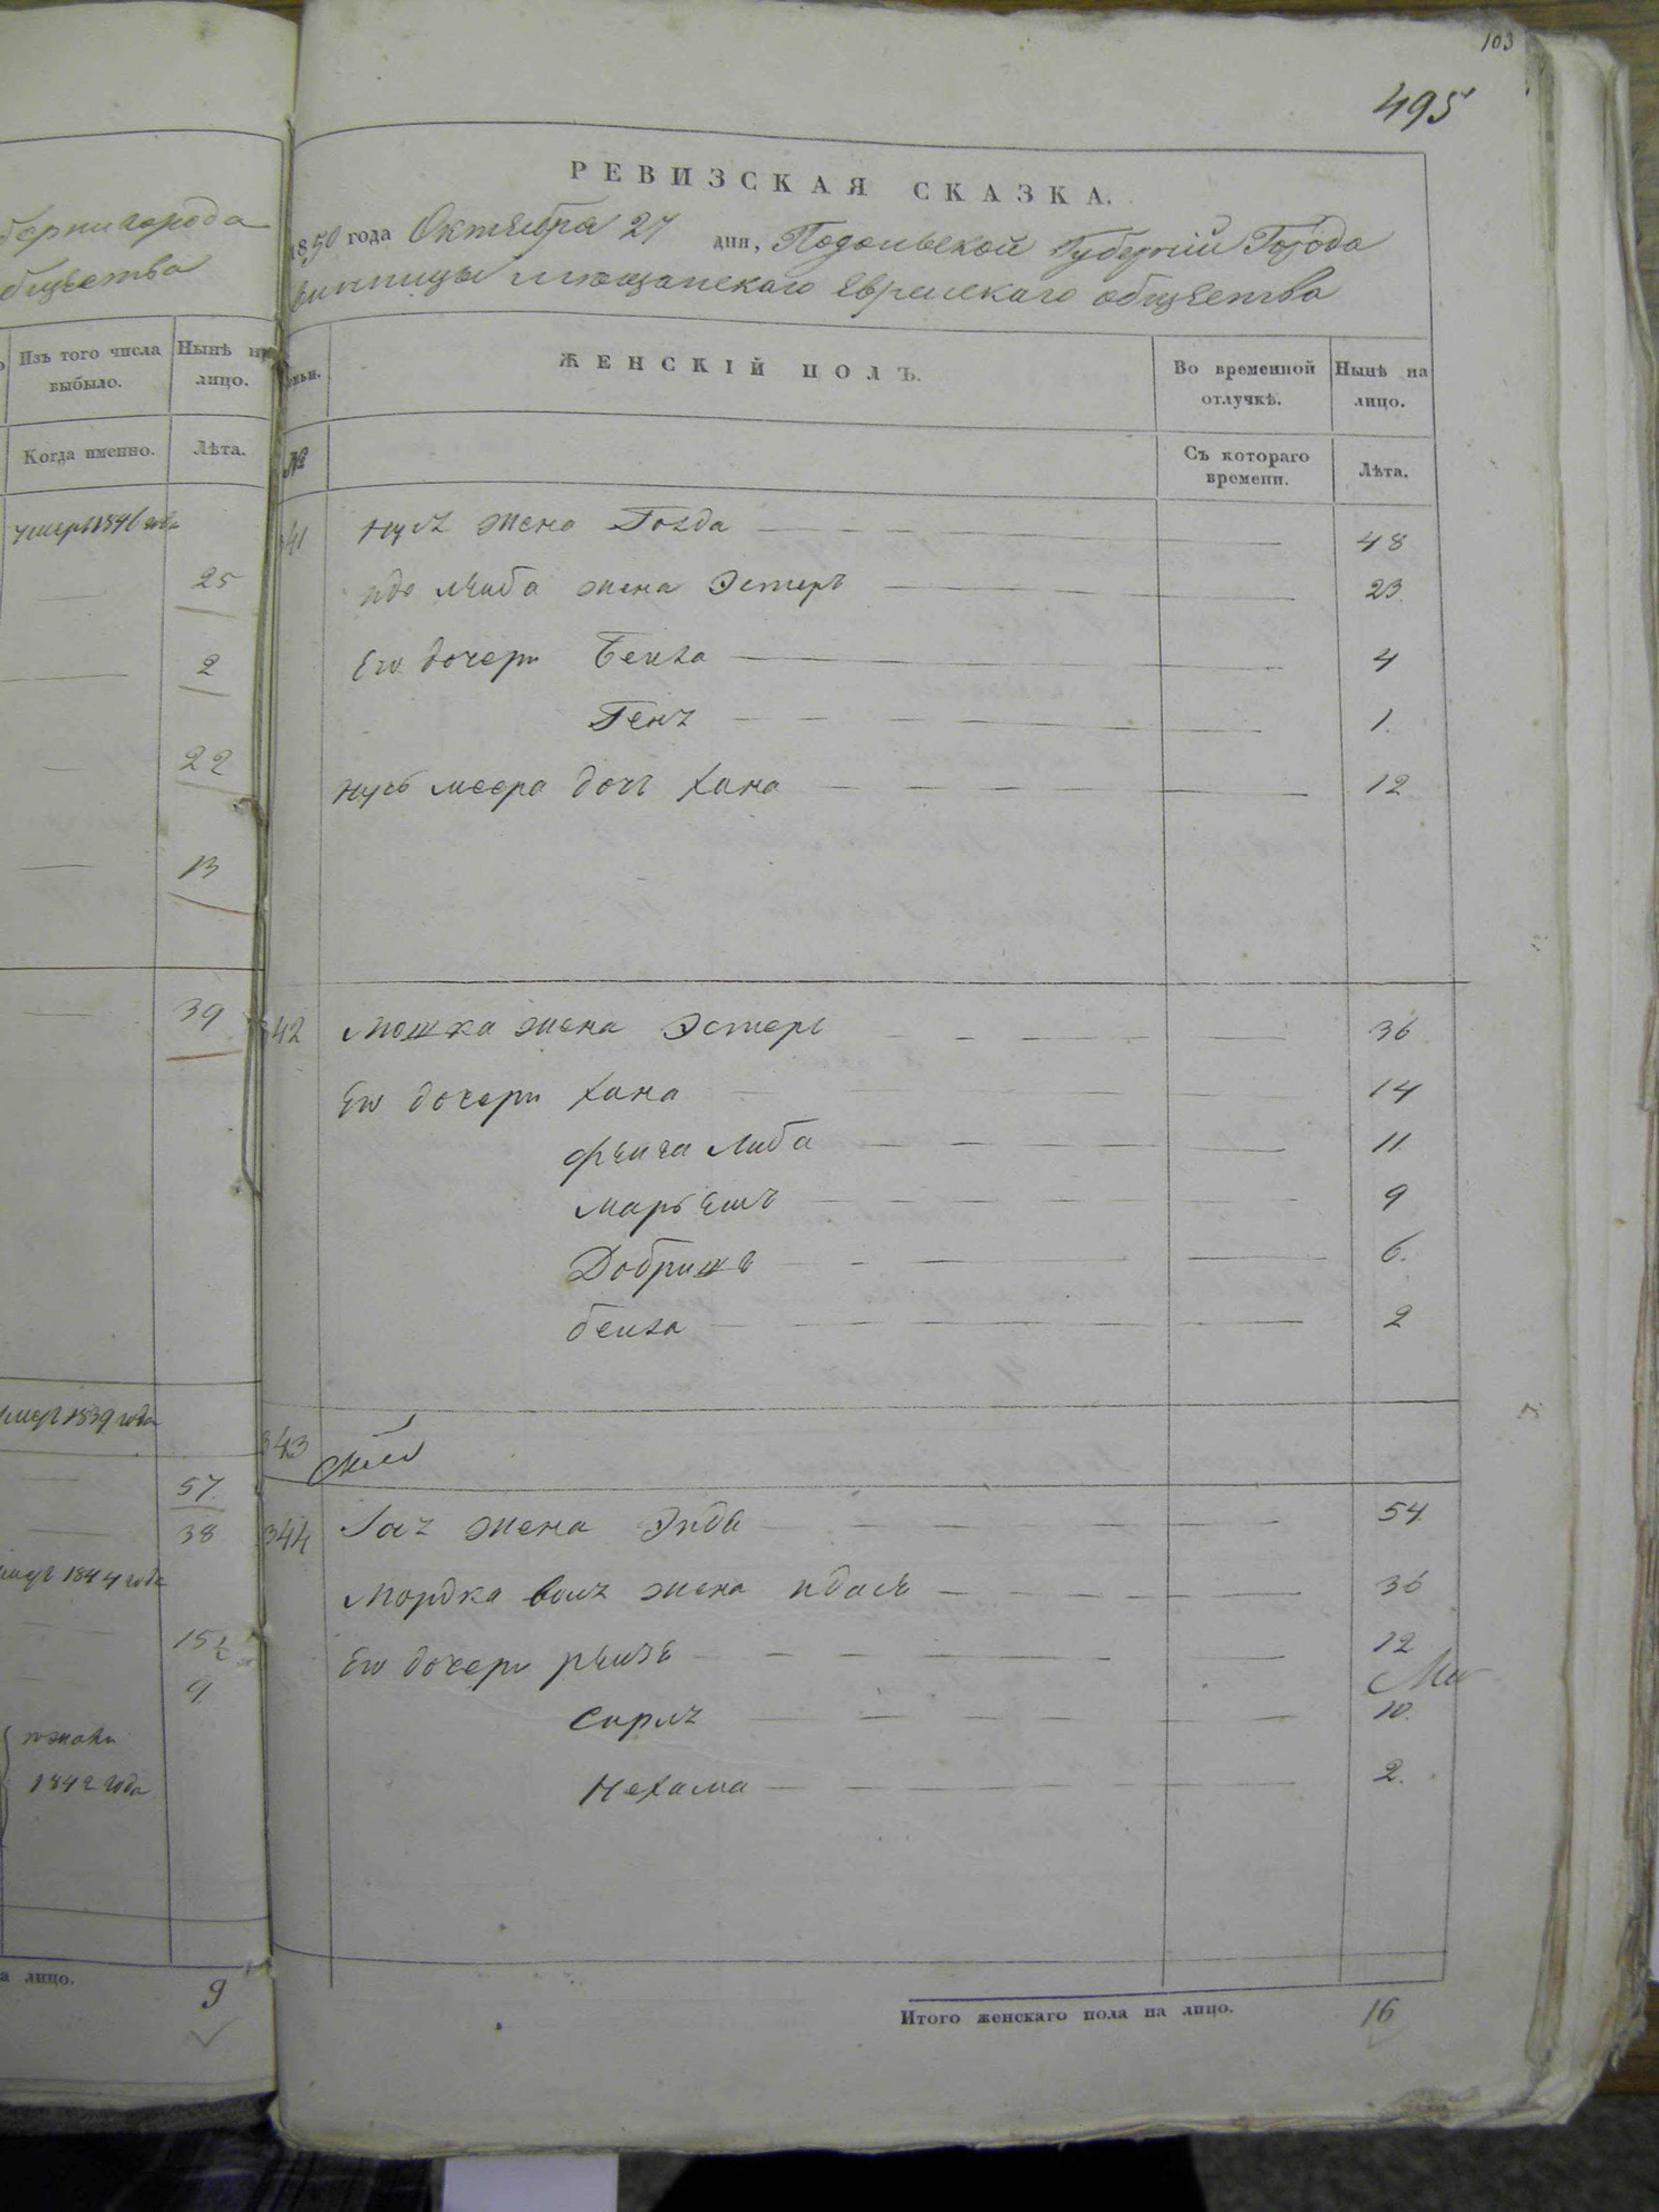 103
495
РЕВИЗСКАЯ СКАЗКА.
1850 года Октября 27 дня, Подольской Губернии Города
Винницы мещанскаго Еврейскаго общества
берни города
бщества
Изъ того числа выбыло.
Нынѣ на лицо.
Когда именно.
Лѣта.
умеръ 1846 года
25
2
22
13
39
умеръ 1839 года
57
38
умеръ 1844 года
15 1/2
9
1842 года
а лицо.
9
ЖЕНСКІЙ ПОЛЪ.
Во временной отлучкѣ.
Нынѣ на лицо.
№
Съ котораго времени.
Лѣта.
341 жена Голда 48
жена Эстеръ 23
Его дочери Бейла 4
Геня 1.
меера дочь Хана 12
342 Мошка жена Эстеръ 36
Его дочери Хана 14
Фейга Либа 11
Марьемъ 9
Добришъ 6.
бейла 2
343
344 жена Энда 54
Мордка жена 36
Его дочери рейзе 12
Сирлъ 10.
Нехама 2.
Итого женскаго пола на лицо. 16